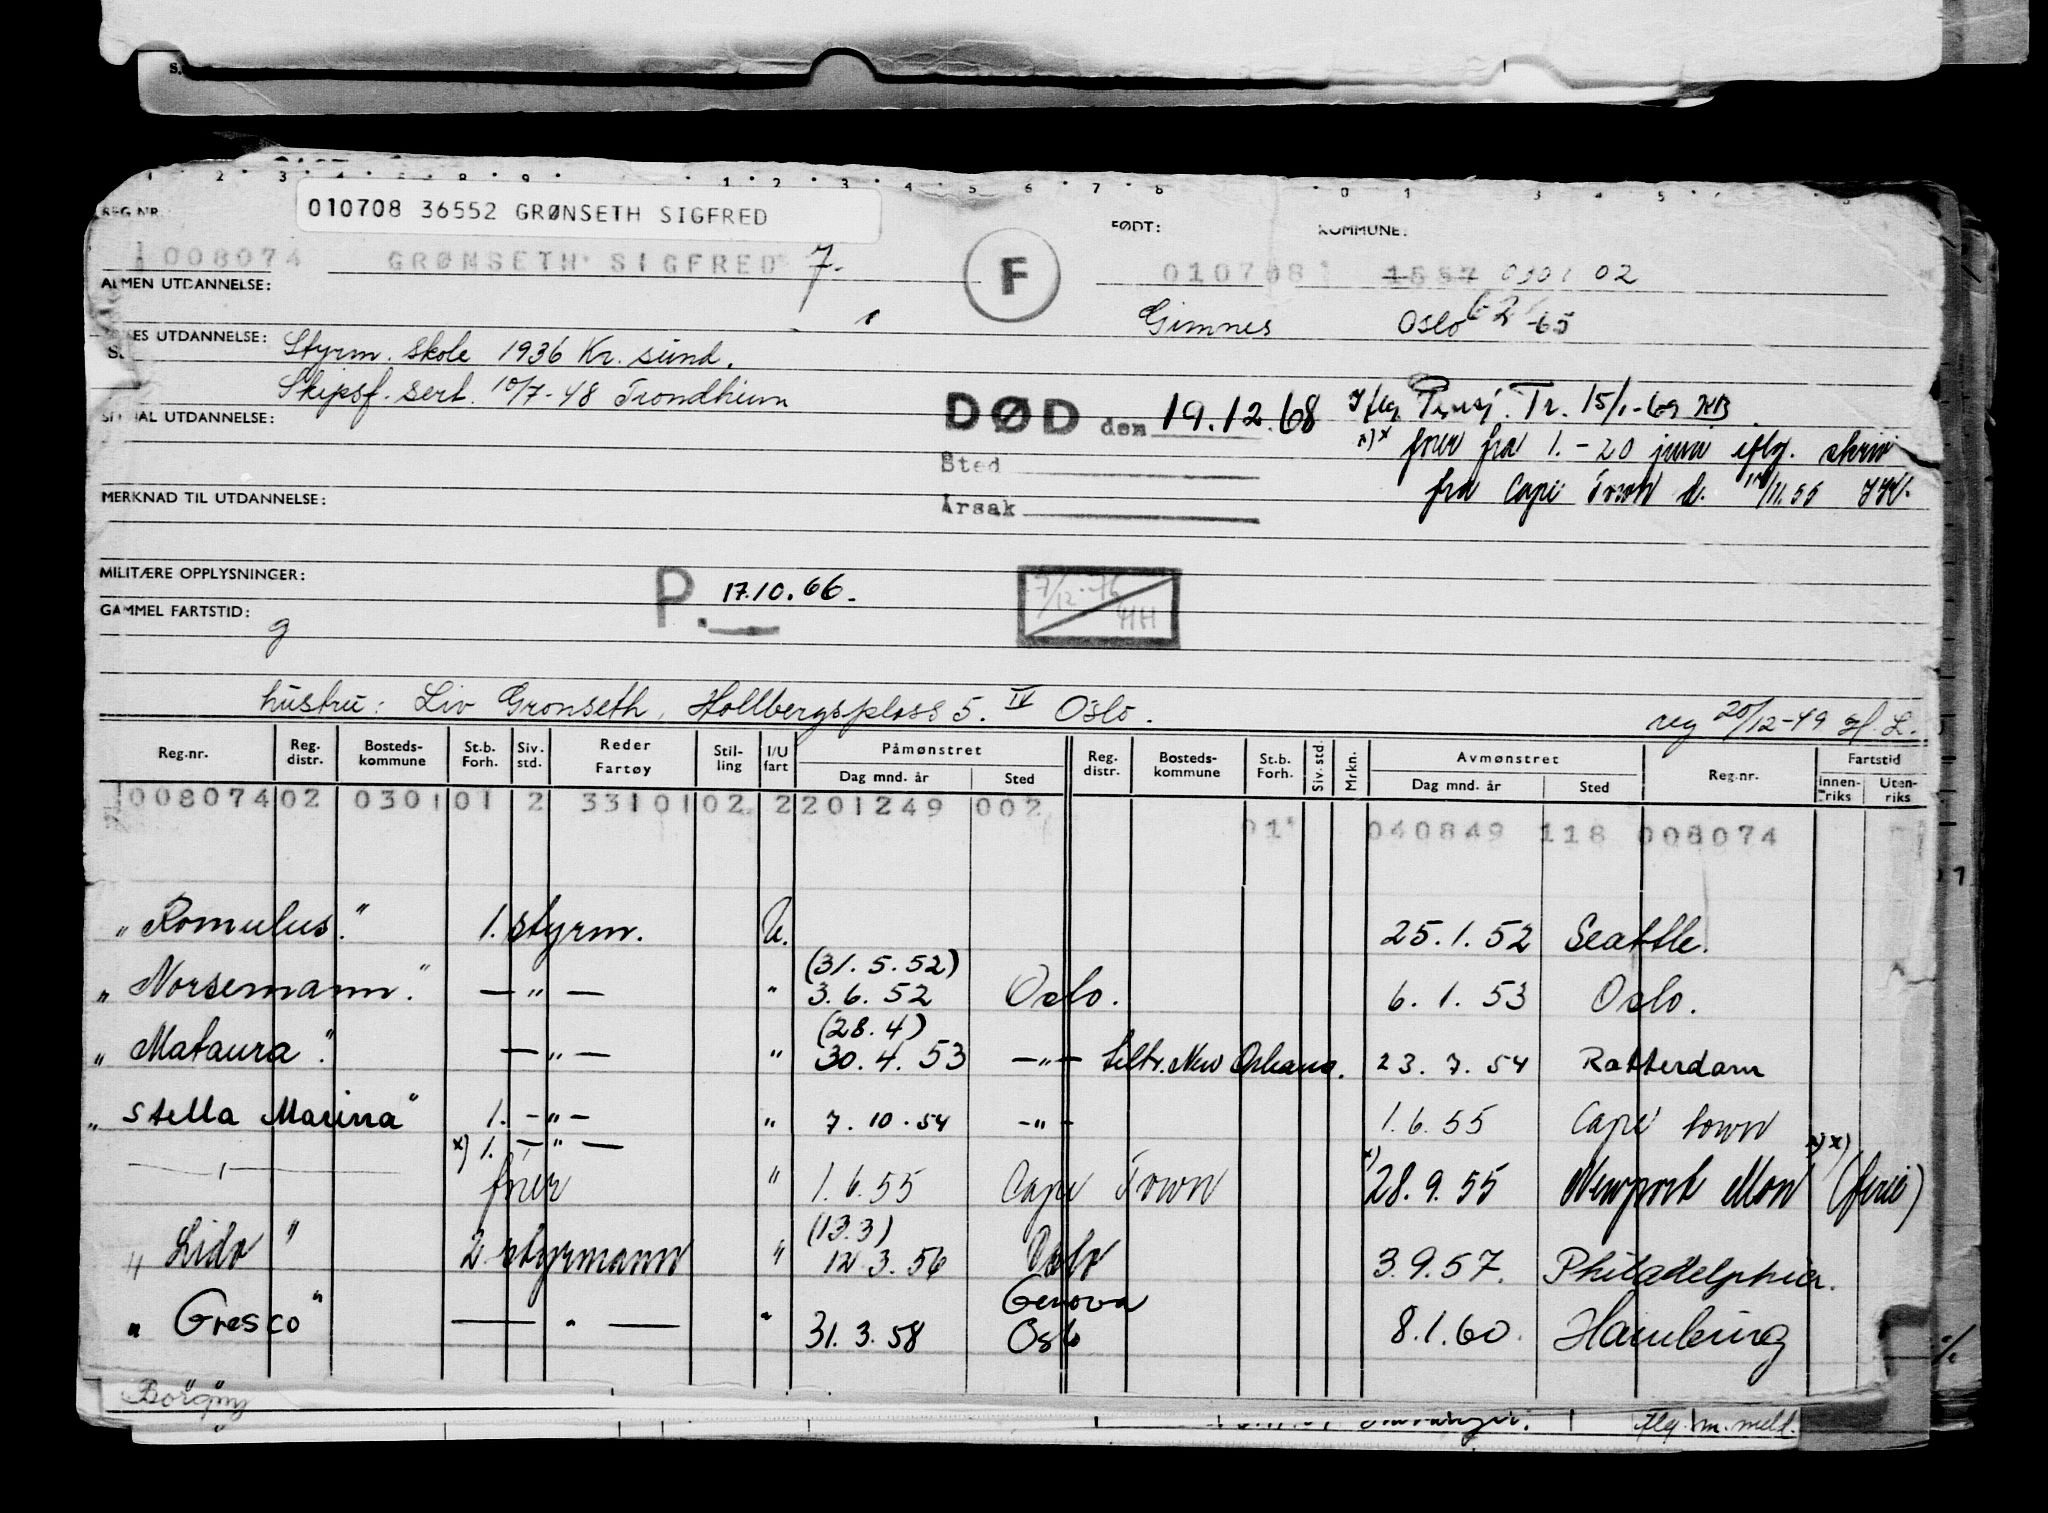 010708 36552 GRØNSETH SIGFRED
REG.NR. FØDT: KOMMUNE:
008074 GRØNSETH SIGFRED 7. F 010708 1557 0301 02
ALMEN UTDANNELSE:
Gimnes Oslo 62 -65
UTDANNELSE: Styrm. skole 1936 Kr. sund.
Skipsf. sert. 10/7-48 Trondheim
DØD den 19.12.68 Tr. 15/1-69
UTDANNELSE:
x)x fra 1.-20 juni iflg. skriv
Sted
fra Cape Town d. /11.55
MERKNAD TIL UTDANNELSE:
Årsak
MILITÆRE OPPLYSNINGER:
P. 17.10.66. 7/12-76 HH
GAMMEL FARTSTID:
g
hustru: Liv Grønseth, Hollbergsplass 5. IV Oslo.
reg 20/12-49 H. L.
Reg.nr. Reg. distr. Bosteds-kommune St.b. Forh. Siv. std. Reder Fartøy Stil-ling I/U fart Påmønstret Dag mnd. år Sted Reg. distr. Bosteds-kommune St.b. Forh. Siv. std. Mrkn. Avmønstret Dag mnd. år Sted Reg.nr. Fartstid Innen-riks Uten-riks
008074 02 0301 01 2 33101 02 2 201249 002
01 040849 118 008074
"Romulus." 1. styrm. U. 25.1.52 Seattle.
(31.5.52)
"Norsemann." —"— " 3.6.52 Oslo. 6.1.53 Oslo.
(28.4)
"Mataura". —"— " 30.4.53 —"— New Orleans. 23.7.54 Rotterdam
"Stella Marina" 1. —"— " 7.10.54 —"— 1.6.55 Cape town
x) 1. —"— x)x)
" 1.6.55 Cape Town x) 28.9.55 Newport Mon (ferie)
(13.3)
"Lido" 2 styrmann " 12.3.56 Oslo 3.9.57. Philadelphia.
Genova
"Gresco" —"— " 31.3.58 Oslo 8.1.60. Hamburg
Borgny
m. meld.